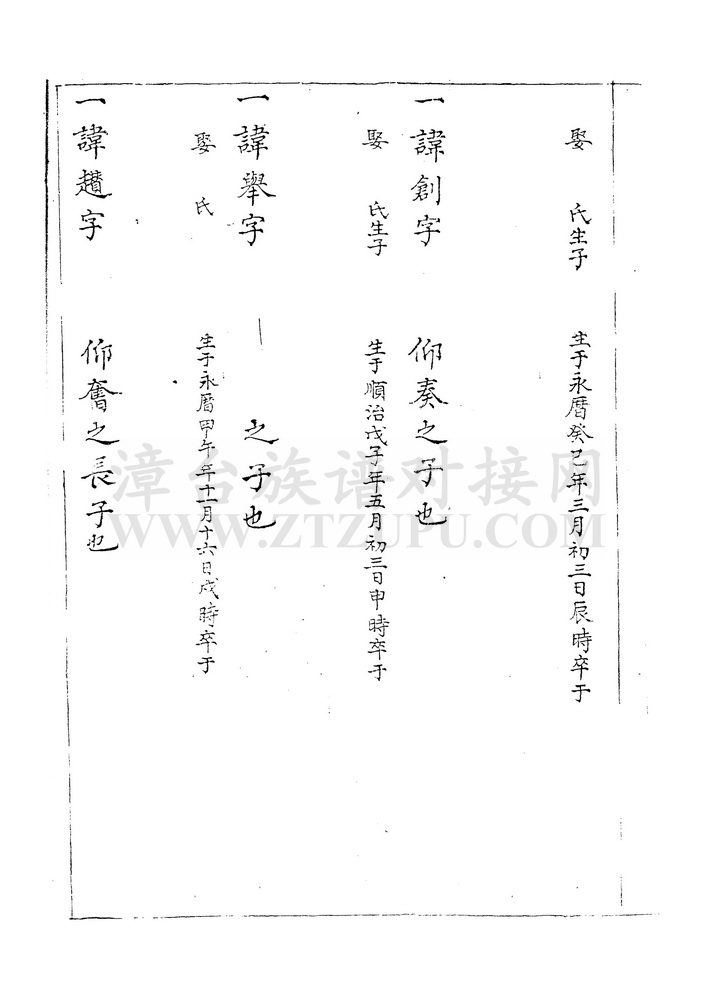 娶　氏生子　生于永曆癸巳年三月初三日辰時卒于
一諱創字　仰奏之子也
娶　氏生子　生于順治戊子年五月初三日申時卒于
一諱舉字　之子也
娶　氏　生于永曆甲午年十一月十六日戌時卒于
一諱趲字　仰奮之長子也
漳台族谱对接网
WWW.ZTZUPU.COM